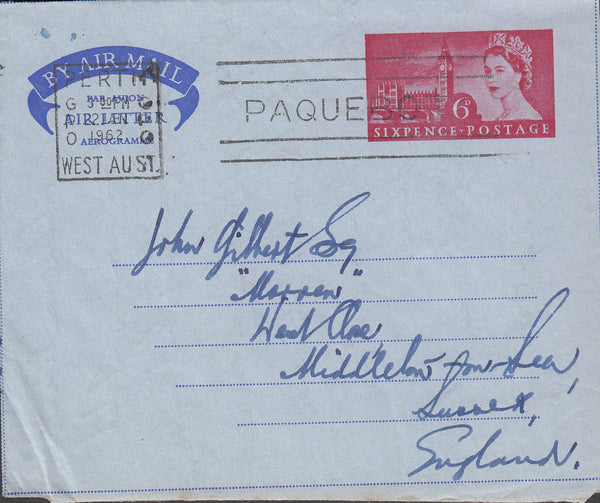 BY AIR MAIL
PAR AVION
AIR LETTER
AEROGRAMME
PERTH
G 5 30PM
P 22JAN
O 1962
WEST AUST.
PAQUEBOT
6D
SIXPENCE·POSTAGE
John Gilbert Esq
"Marren"
West Close,
Middleton-on-Sea,
Sussex,
England.